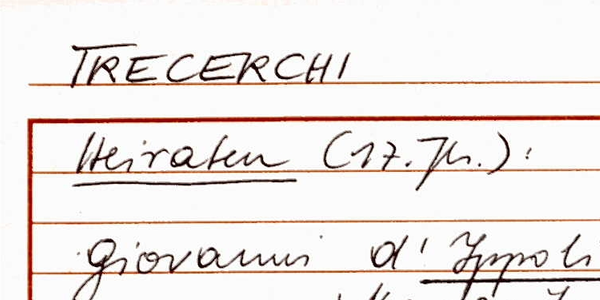 TRECERCHI
Heiraten (17. Jh.):
Giovanni d'Ippoli